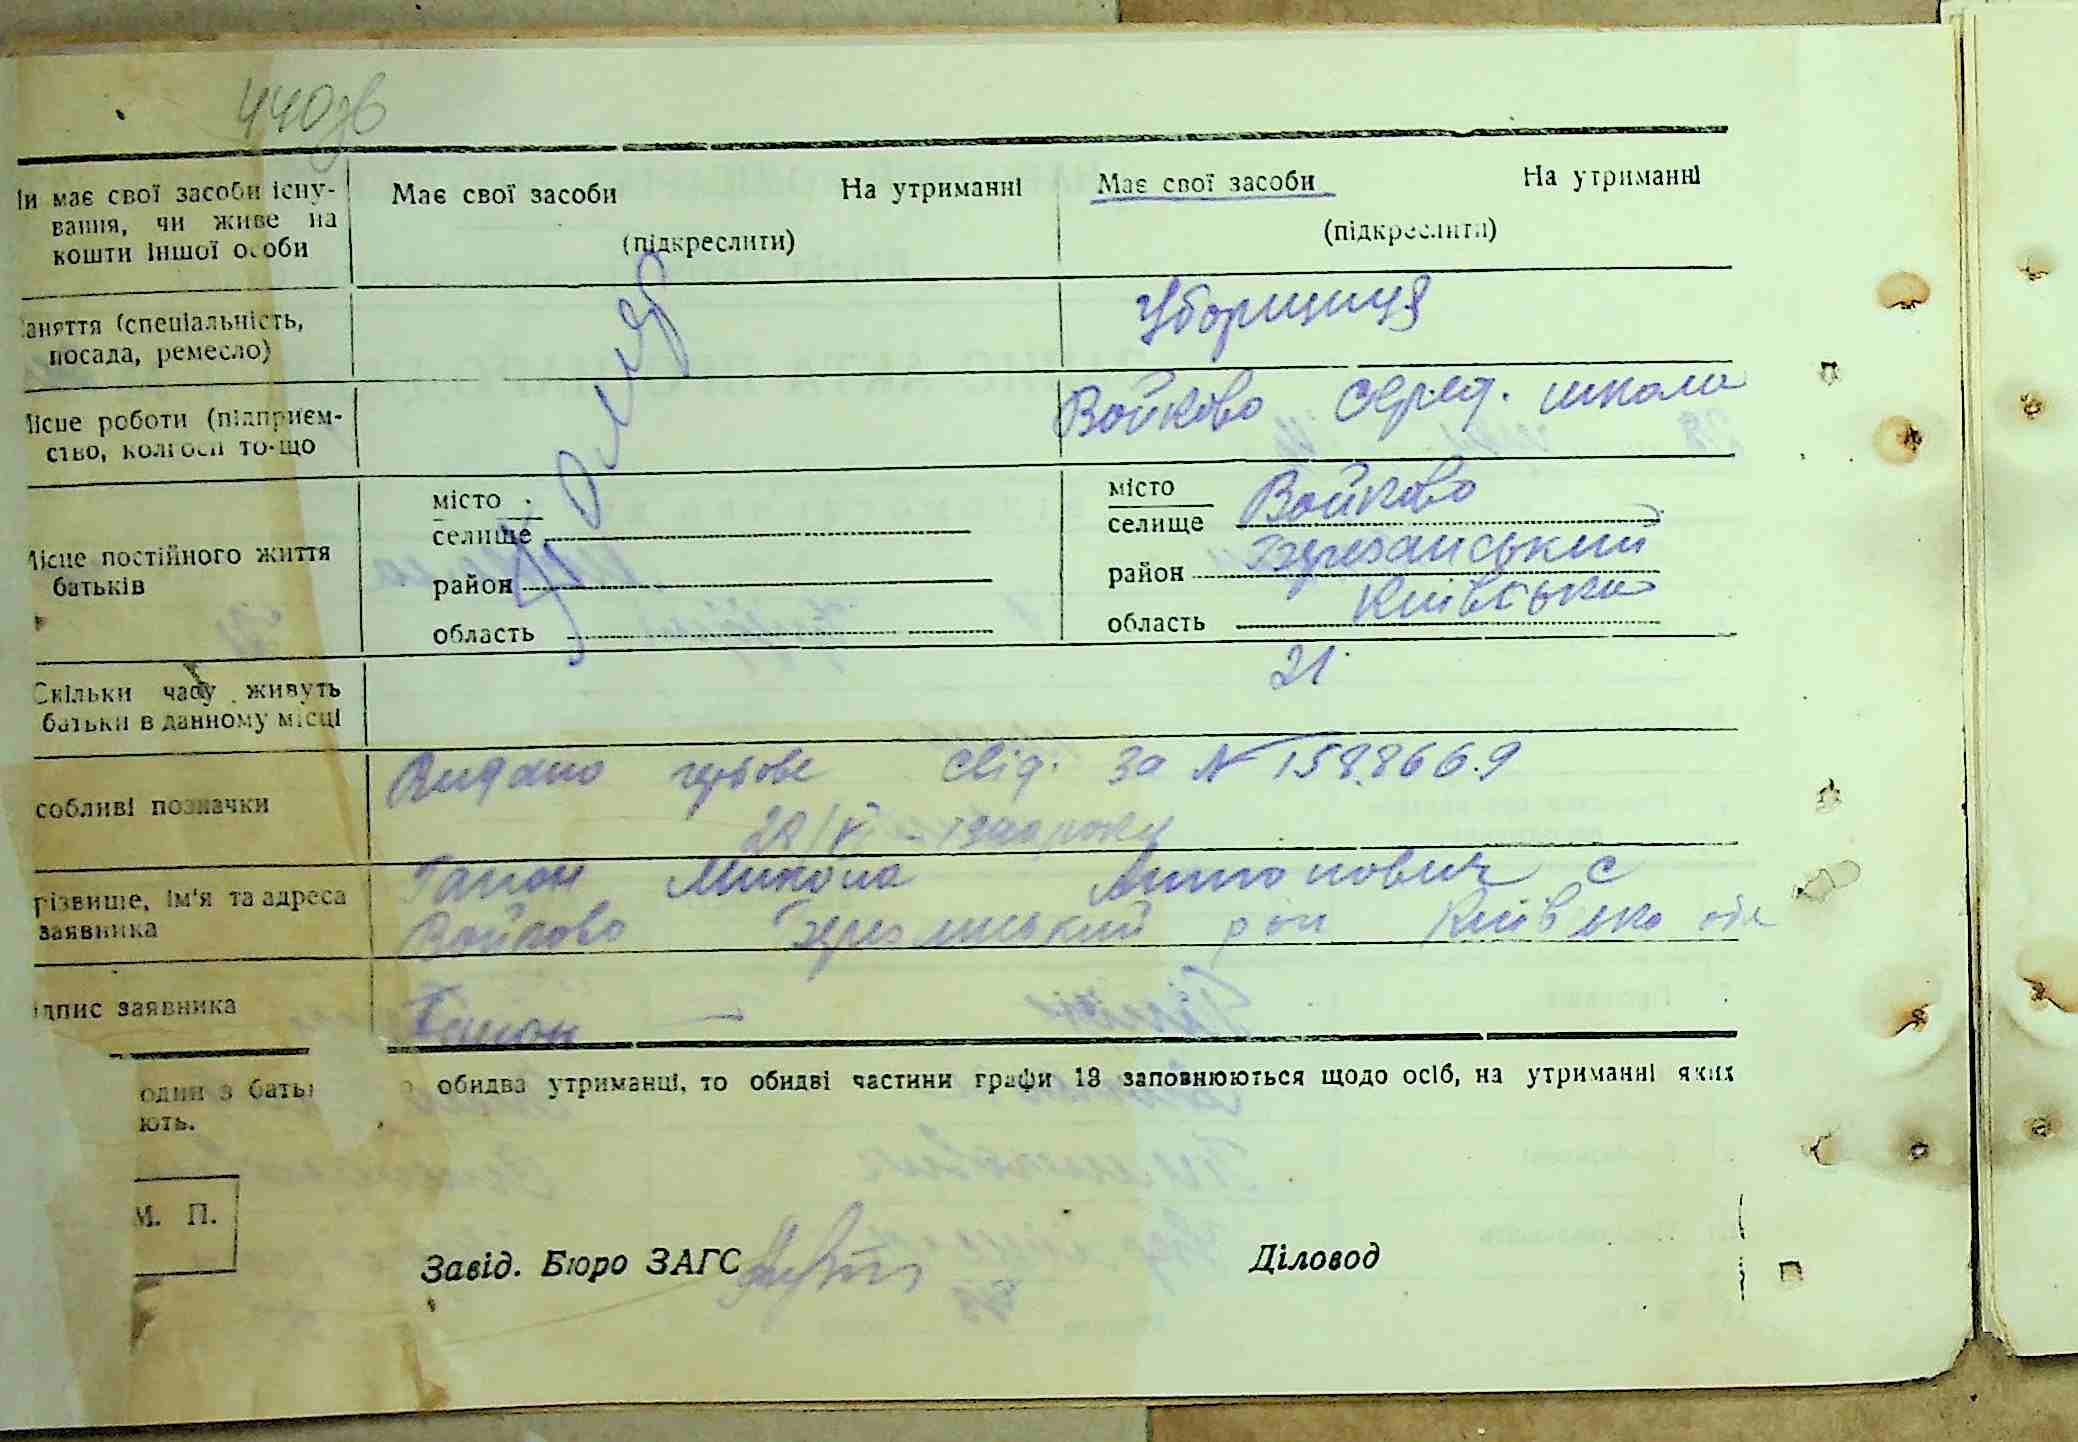 440зв
Чи має свої засоби існу- Має свої засоби На утриманні Має свої засоби На утриманні
вання, чи живе на
кошти іншої особи (підкреслити) (підкреслити)
Заняття (спеціальність, Уборщиця
посада, ремесло)
Місце роботи (підприєм- Войково серед. школа
ство, колгосп то-що
місто місто Войково
селище селище
Місце постійного життя район район Березанський
батьків
область область Київська
Скільки часу живуть 21
батьки в данному місці
Видано гербове свід. за № 158.866.9
собливі позначки
Гапон Микола Антонович с
різвище, ім'я та адреса
заявника Войково Березанський р он Київська обл
ідпис заявника Гапон
один з бать обидва утриманці, то обидві частини графи 19 заповнюються щодо осіб, на утриманні яких
ють.
М. П.
Завід. Бюро ЗАГС Діловод